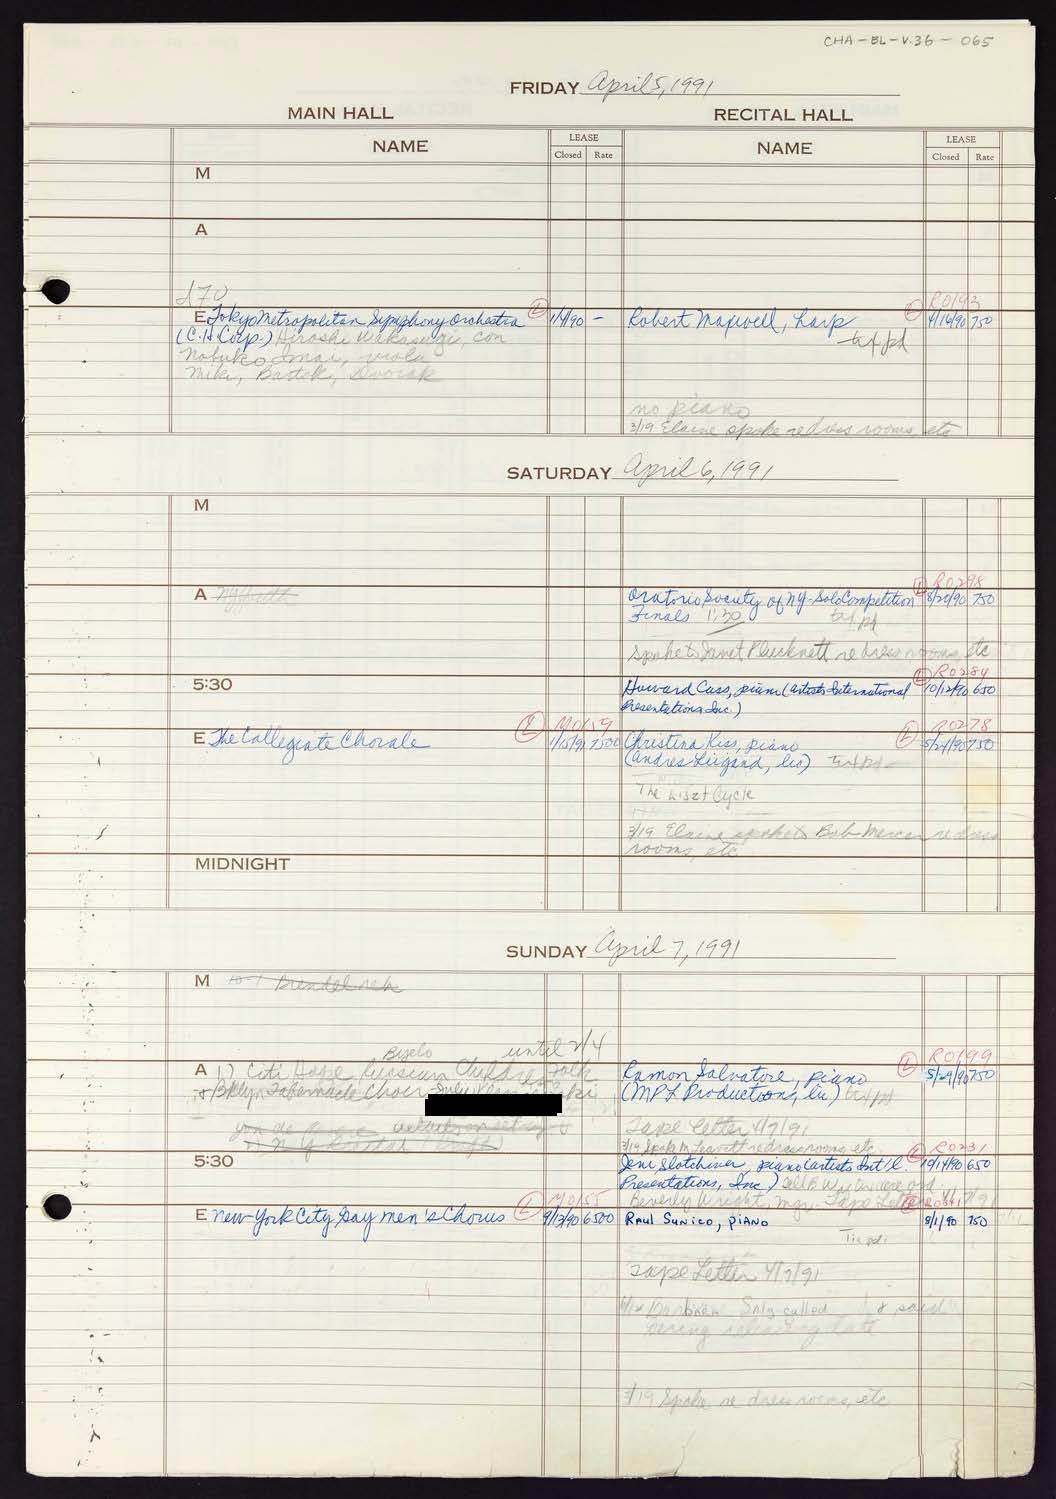 CHA-BL-V.36-065
FRIDAY April 5, 1991
MAIN HALL
RECITAL HALL
NAME
LEASE
Closed Rate
NAME
LEASE
Closed Rate
M
A
£70
E Tokyo Metropolitan Symphony Orchestra L 1/4/90 –
(C.H. Corp.) Hiroshi Wakasugi, con
Nobuko Imai, viola
Miki, Bartok, Dvorak
R0193
Robert Maxwell, harp L 4/16/90 750
tix pd
no piano
3/19 Elaine spoke re dress rooms, etc
SATURDAY April 6, 1991
M
A
R0298
Oratorio Society of NY-Solo Competition L 8/29/90 750
Finals 1:30 tix pd
spoke to Janet Plucknett re dress rooms, etc
5:30
R0284
Howard Cass, piano (Artists International L 10/12/90 650
Presentations Inc.)
M0159
E The Collegiate Chorale L 1/5/91 7500
R0278
Christina Kiss, piano L 5/24/90 750
(Andres Leigand, lic) tix pd
The Liszt Cycle
3/19 Elaine spoke to Bob Mercer re dress
rooms, etc
MIDNIGHT
SUNDAY April 7, 1991
M 10-1 Brendel reh
until 2/4
A 1) Citi Hope Russian Children Folk
Bklyn Tabernacle Choir
R0199
Ramon Salvatore, piano L 5/29/90 750
(MPL Productions, lic) tix pd
Tape Letter 4/7/91
3/19 Spoke M Leavett re dress rooms, etc
5:30
R0231
Jeni Slotchiver, piano (Artists Int'l. L 650
Presentations, Inc.)
Beverly Wright, mgr. Tape Letter
M0155
E New York City Gay Men's Chorus L 9/13/90 6500
Raul Sunico, piano 8/1/90 750
Tix pd.
Tape Letter 4/7/91
called & said
3/19 Spoke re dress rooms, etc